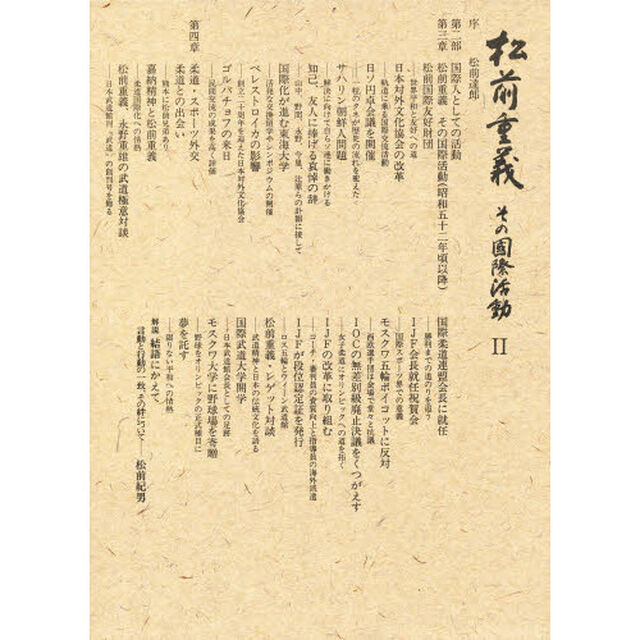 松前重義 その國際活動 II
序 松前達郎
第二部 国際人としての活動
第三章 松前重義 その国際活動(昭和五十二年頃以降)
松前国際友好財団
──世界平和と友好への道
日本対外文化協会の改革
──軌道に乗る国際交流活動
日ソ円卓会議を開催
──一粒のタネが歴史の流れを変えた
サハリン朝鮮人問題
──解決に向けて自らソ連に働きかける
知己、友人に捧げる哀悼の辞
──山中、野間、永野、今里、辻原らの訃報に接して
国際化が進む東海大学
──活発な交換留学やシンポジウムの開催
ペレストロイカの影響
──創立二十周年を迎えた日本対外文化協会
ゴルバチョフの来日
──民間交流の成果を高く評価
第四章 柔道・スポーツ外交
柔道との出会い
──熊本に松前兄弟あり
嘉納精神と松前重義
──柔道国際化への情熱
松前重義、永野重雄の武道極意対談
──日本武道館刊『武道』の創刊号を飾る
国際柔道連盟会長に就任
──勝利までの道のりを追う
IJF会長就任祝賀会
──国際スポーツ界での意義
モスクワ五輪ボイコットに反対
──西欧選手団は会場で堂々と抗議
IOCの無差別級廃止決議をくつがえす
──女子柔道にオリンピックへの道を拓く
IJFの改革に取り組む
──コーチ・審判員の資質向上と指導員の海外派遣
IJFが段位認定証を発行
──ロス五輪とウイーン武道館
松前重義・レゲット対談
──武道精神と日本の伝統文化を語る
国際武道大学開学
──日本武道館会長としての足跡
モスクワ大学に野球場を寄贈
──野球をオリンピックの正式種目に
夢を託す
──限りない平和への情熱
解説 結語にかえて
言動と行動の一致、その絆について──松前紀男